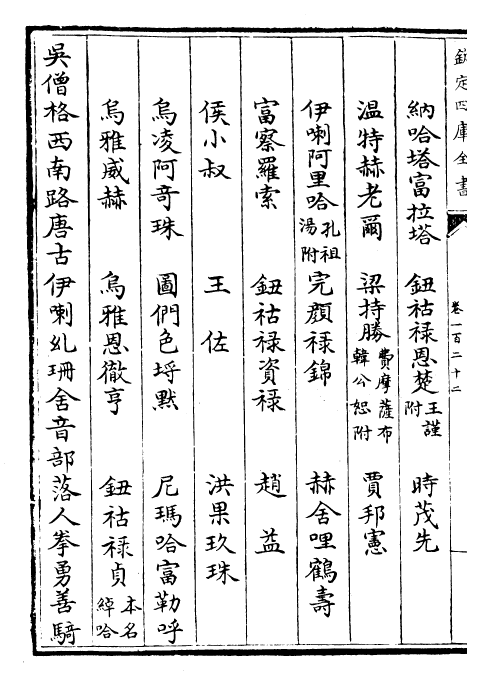 欽定四庫全書
卷一百二十二
納哈塔富拉塔 鈕祜禄恩楚王謹附 時茂先
温特赫老爾 梁持勝費摩薩布韓公恕附 賈邦憲
伊喇阿里哈孔祖湯附 完顔禄錦 赫舍哩鶴壽
富察羅索 鈕祜禄資禄 趙益
侯小叔 王佐 洪果玖珠
烏凌阿竒珠 圖們色埒黙 尼瑪哈富勒呼
烏雅威赫 烏雅恩徹亨 鈕祜禄貞本名綽哈
吳僧格西南路唐古伊喇乣珊舍音部落人拳勇善騎